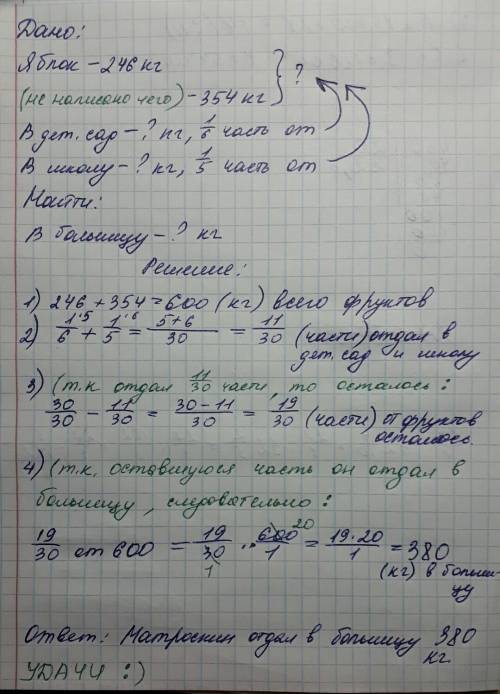 Дано:
Яблок – 246 кг
(не написано чего) – 354 кг } ?
В дет. сад – ? кг, 1/6 часть от
В школу – ? кг, 1/5 часть от
Найти:
В больницу – ? кг
Решение:
1) 246 + 354 = 600 (кг) всего фруктов
2) 1·5/6 + 1·6/5 = 5+6/30 = 11/30 (части) отдал в
дет. сад и школу
3) (т.к отдал 11/30 части, то осталось:
30/30 – 11/30 = 30–11/30 = 19/30 (части) от фруктов
осталось.
4) (т.к. оставшуюся часть он отдал в
больницу, следовательно:
19/30 от 600 = 19/30 1 · 600/1 20 = 19·20/1 = 380
(кг) в больни-
цу
Ответ: Матроскин отдал в больницу 380
кг.
УДАЧИ :)